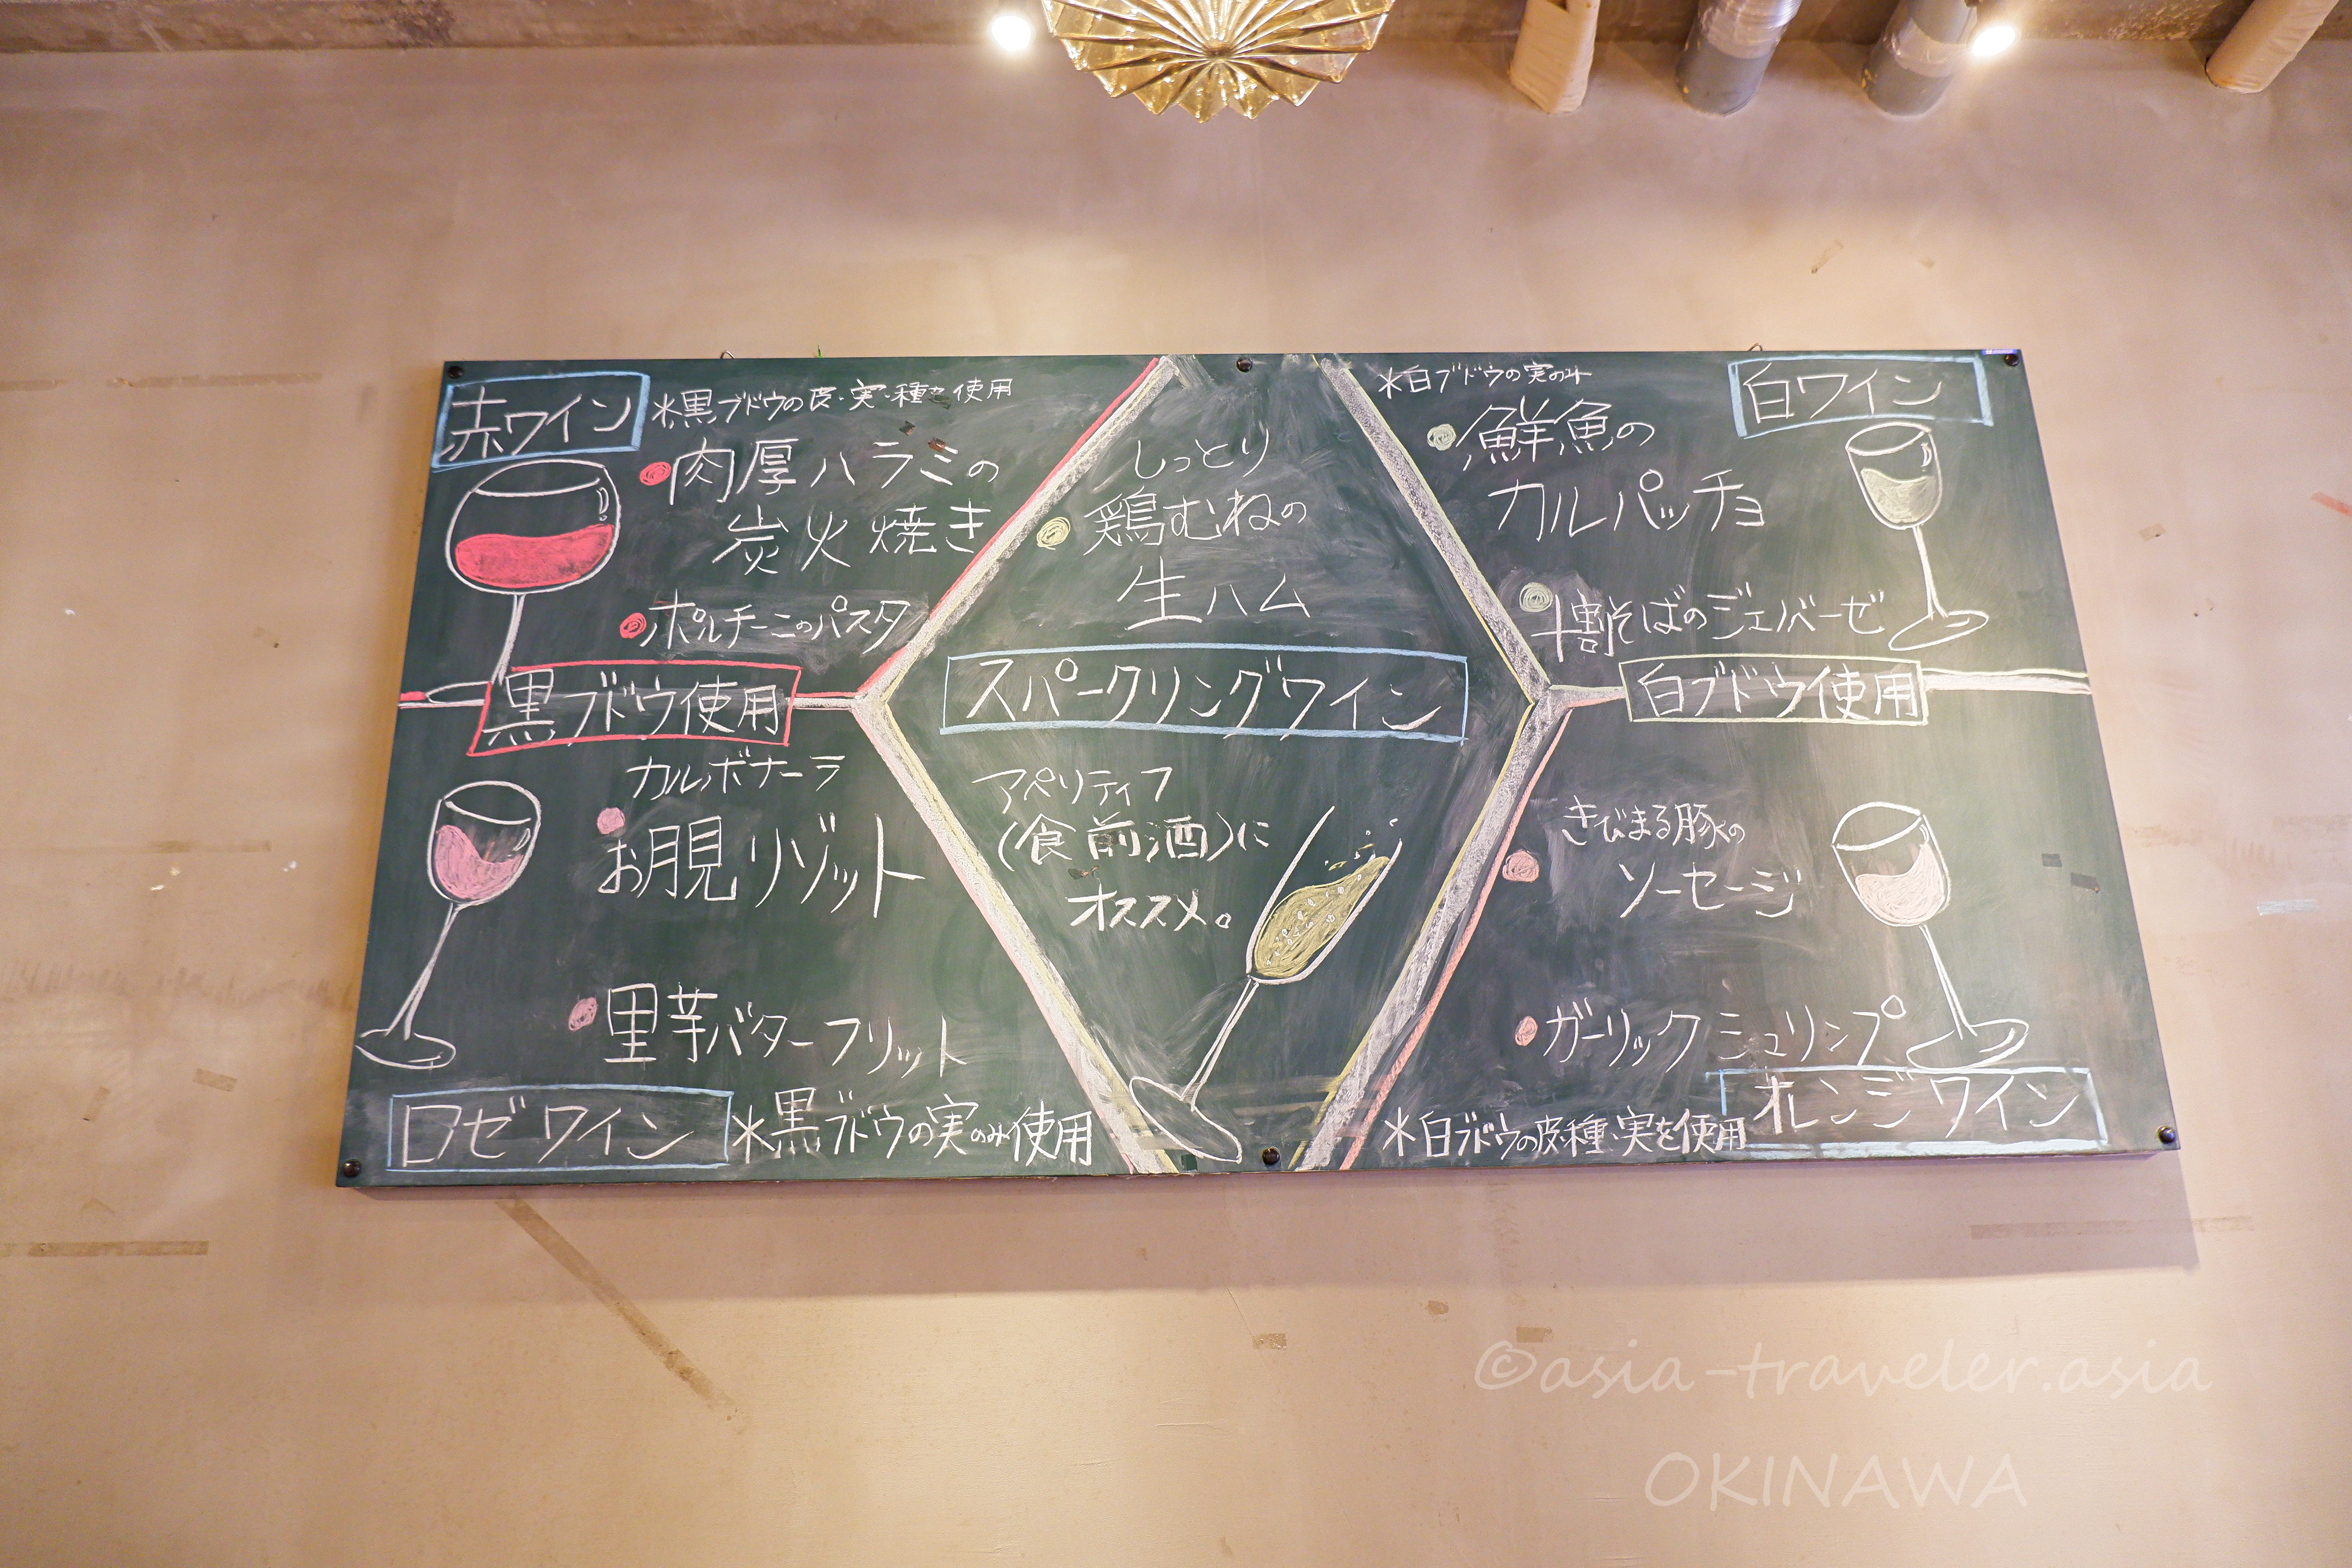 赤ワイン
*黒ブドウの皮・実・種を使用
肉厚ハラミの
炭火焼き
ポルチーニのパスタ
黒ブドウ使用
カルボナーラ
お月見リゾット
里芋バターフリット
ロゼワイン
*黒ブドウの実のみ使用
しっとり
鶏むねの
生ハム
スパークリングワイン
アペリティフ
(食前酒)に
オススメ。
*白ブドウの実のみ
白ワイン
鮮魚の
カルパッチョ
十割そばのジェノバーゼ
白ブドウ使用
きびまる豚の
ソーセージ
ガーリックシュリンプ
オレンジワイン
*白ブドウの皮・種・実を使用
©asia-traveler.asia
OKINAWA